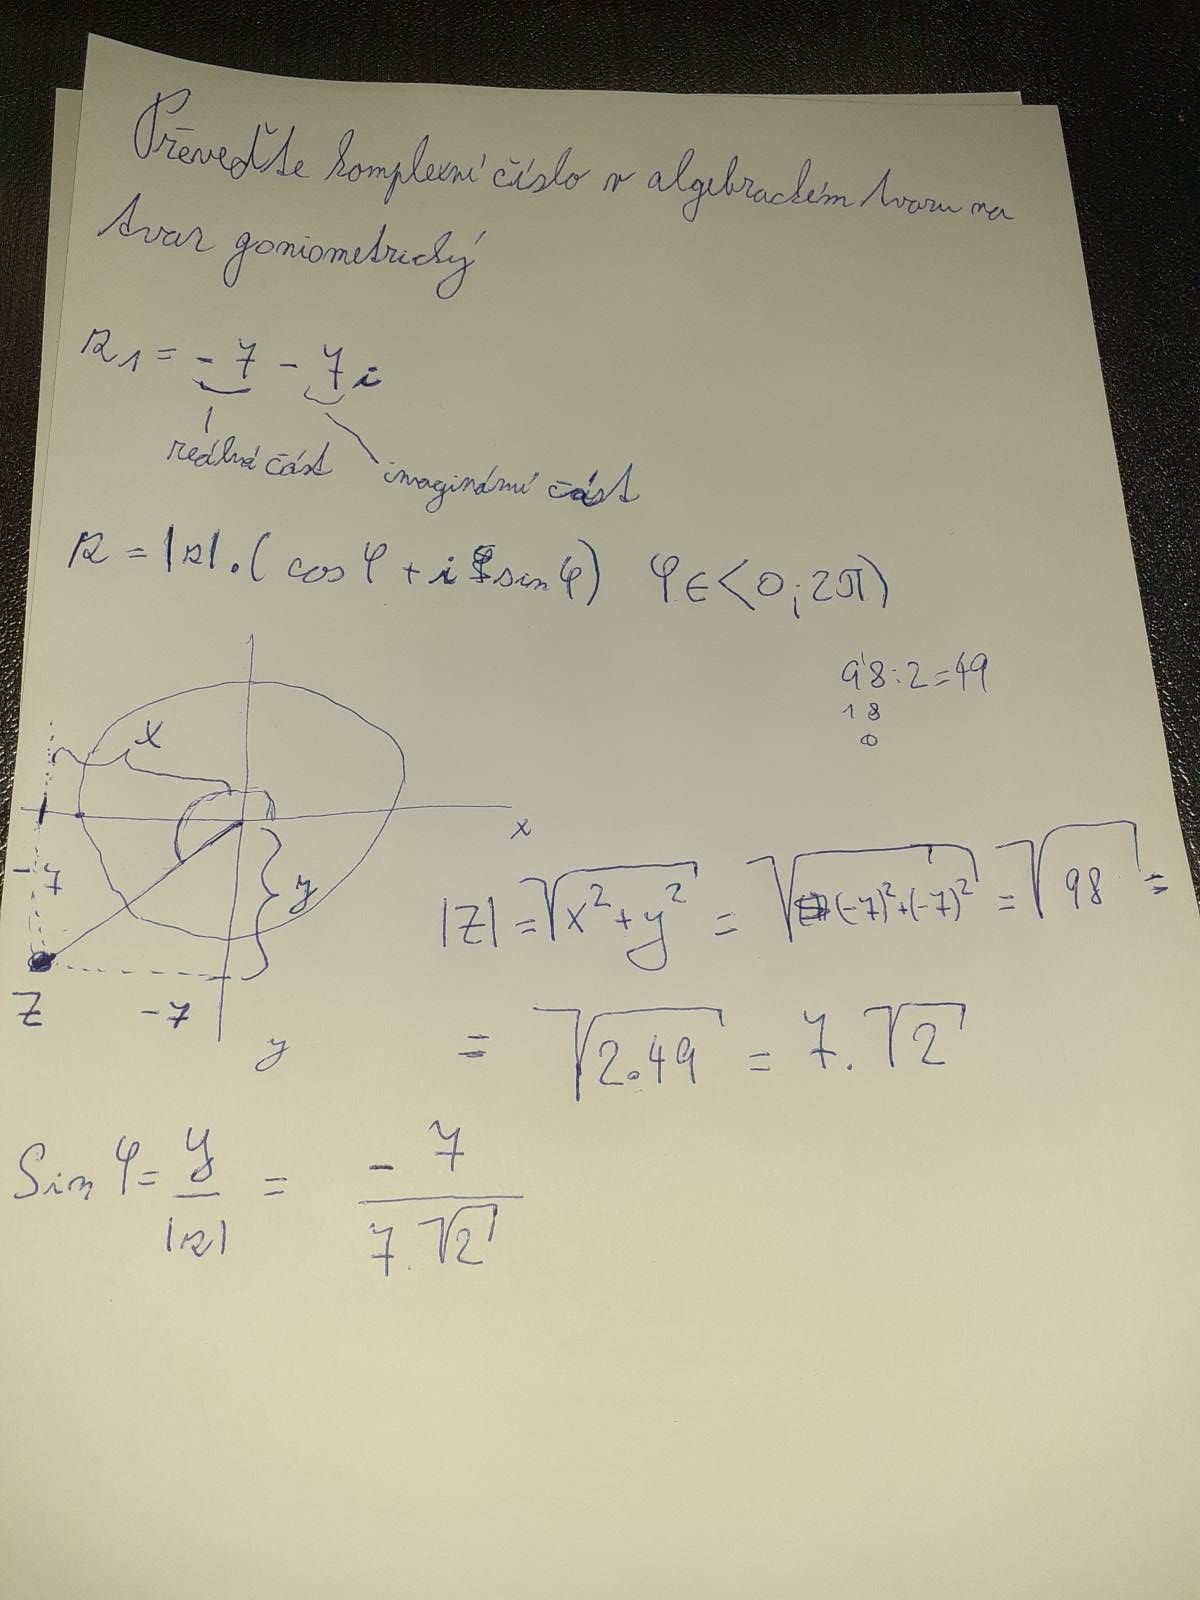 Převeďte komplexní číslo v algebrackém tvaru na
tvar goniometrický
z₁ = - 7 - 7i
reálná část
imaginární část
z = |z|.( cos φ + i sin φ) φ ∈ <0;2π)
98:2=49
18
0
x
x
-7
y
Z
-7
y
|Z| = √x²+y² = √(-7)²+(-7)² = √98 =
= √2.49 = 7.√2
Sin φ = y/|z| = -7/7.√2